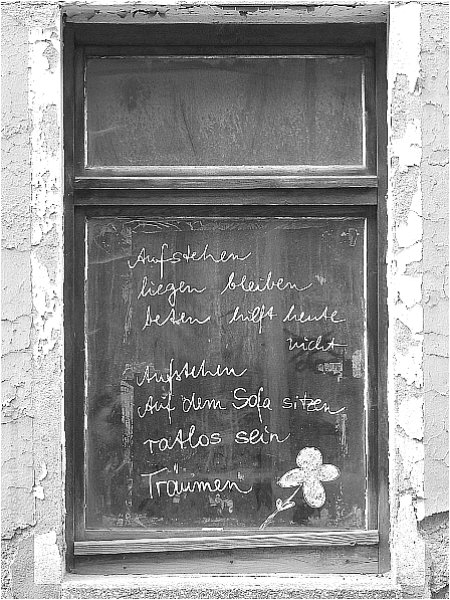 Aufstehen
liegen bleiben
beten hilft heute
nicht
Aufstehen
Auf dem Sofa sitzen
ratlos sein
Träumen